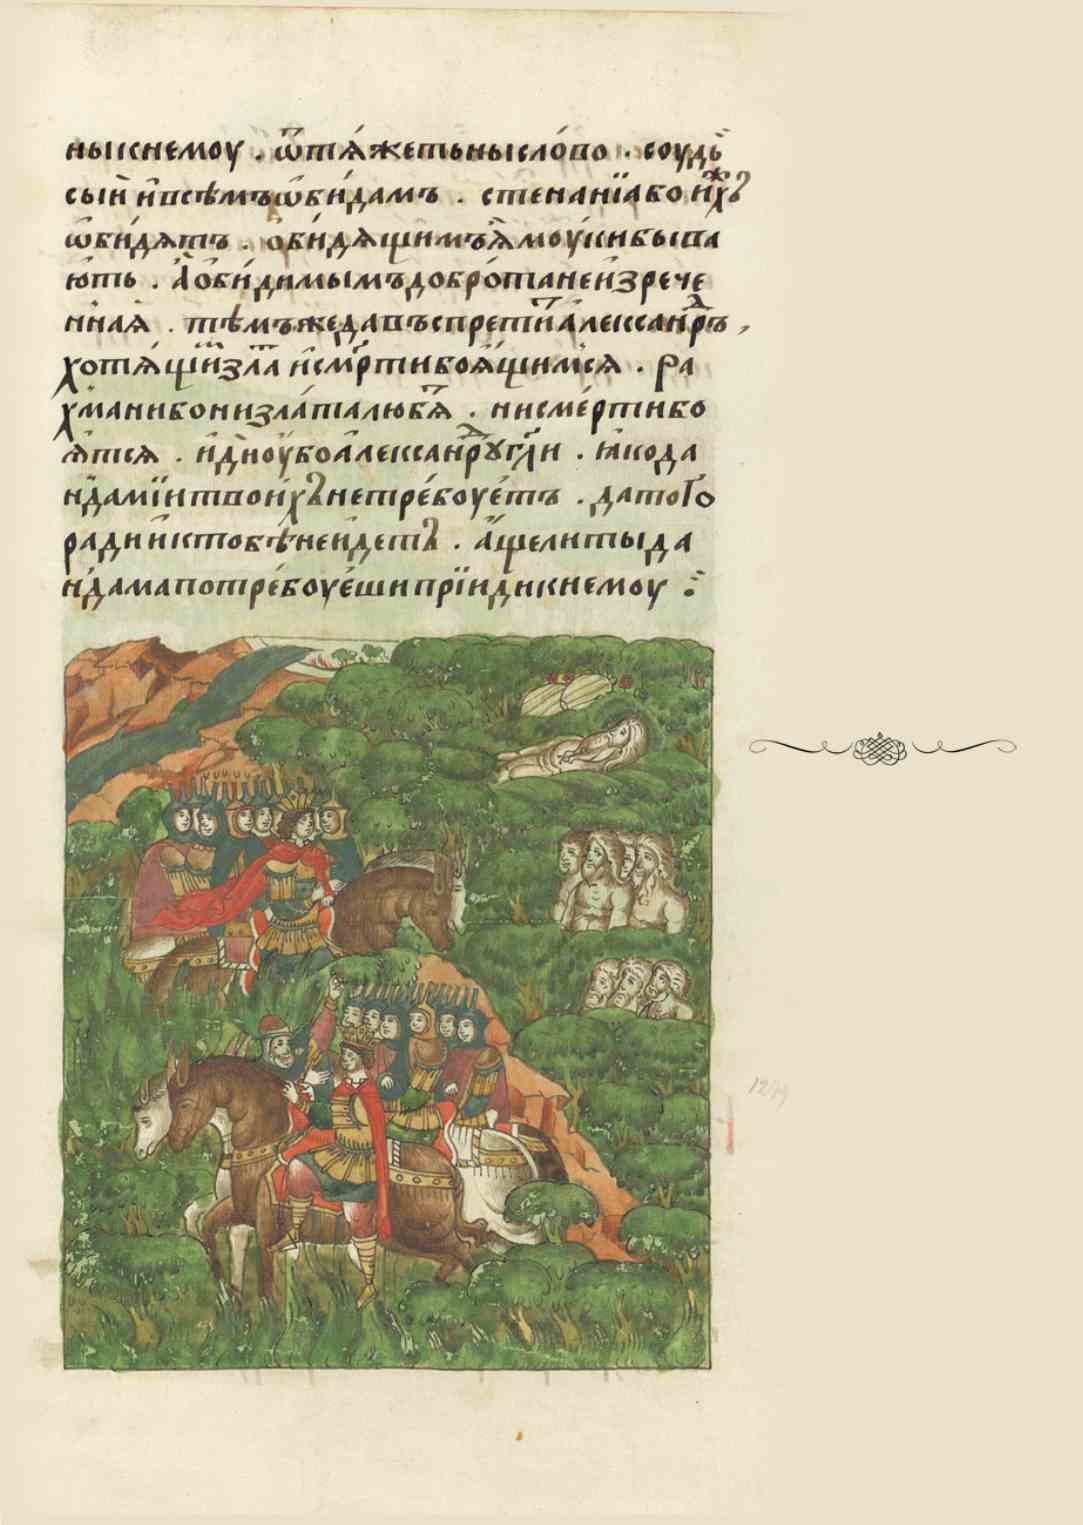 ны к немоу . ѿтѧжеть ны слово . соудъ
сый и всѣмъ ѡбидамъ . стенанїа бо ихже
ѡбидятъ . обидѧщимъ ѧ моуки быва
ють . А обидимымъ доброта неизрече
нная . тѣмже да въспретитъ Александръ ,
хотѧщи злата и смрти боящимсѧ . Ра
хмани бо ни злата любятъ . ни смерти бо
ятсѧ . иди оубо александру гли . яко да
ндамїи твоихъ не требоуетъ . да того
ради и к тобѣ не идетъ . аще ли ты да
ндама потребоуеши прїиди к немоу :
1279